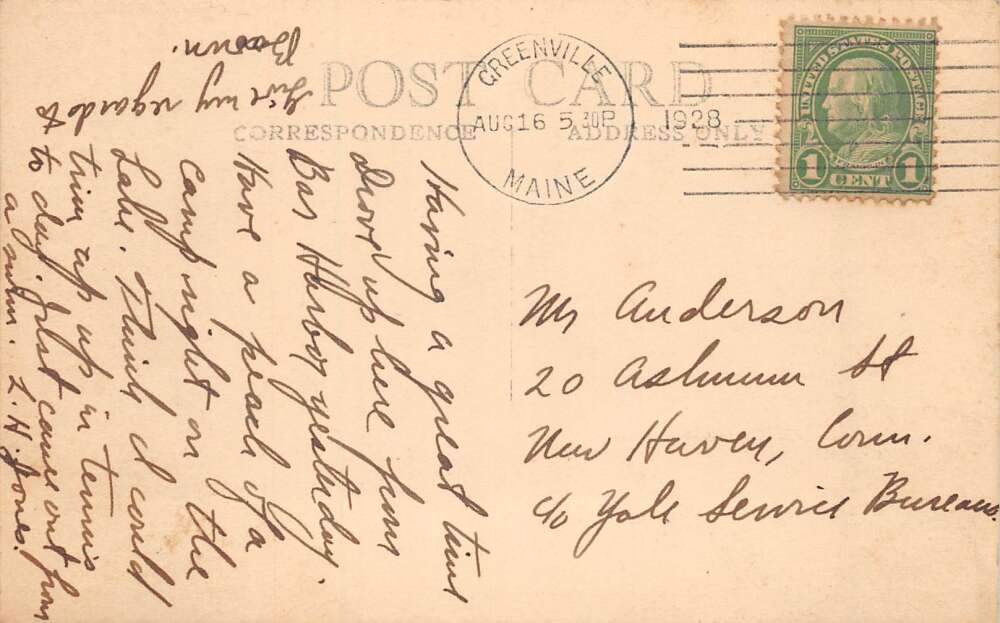 POST CARD
CORRESPONDENCE
ADDRESS ONLY
GREENVILLE
AUG 16 5 30P
MAINE
1928
UNITED STATES POSTAGE
FRANKLIN
1 CENT 1
Mr Anderson
20 Ashmun St
New Haven, Conn.
c/o Yale Service Bureau.
Having a great time
Drove up here from
Bar Harbor yesterday.
Have a peach of a
camp right on the
Lake. Think I could
trim up in tennis
to day. Just came out from
a swim. L. H. Jones.
Give my regards to
Brown.